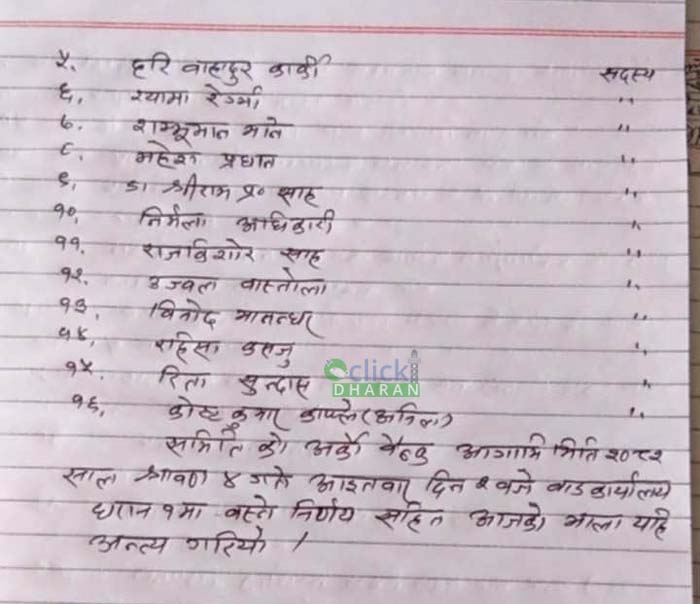 ५. हरि वाहादुर कार्की सदस्य
६. श्यामा रेग्मी "
७. शम्भुमान माते "
८. महेश प्रधान "
९. डा श्रीराम प्र० साह "
१०. निर्मला अधिकारी "
११. राजकिशोर साह "
१२. उज्वल वास्तोला "
१३. विनोद मानन्धर "
१४. "
१५. रिता सुन्दास "
१६. कुमार काफ्ले "
eclick
DHARAN
समिति को अर्को वैठक आगामि मिति २०८२
साल श्रावण ४ गते आइतवार दिन वजे वाड कार्यालय
धरान १मा वस्ने निर्णय सहित आजको भाला यहि
अन्त्य गरियो ।